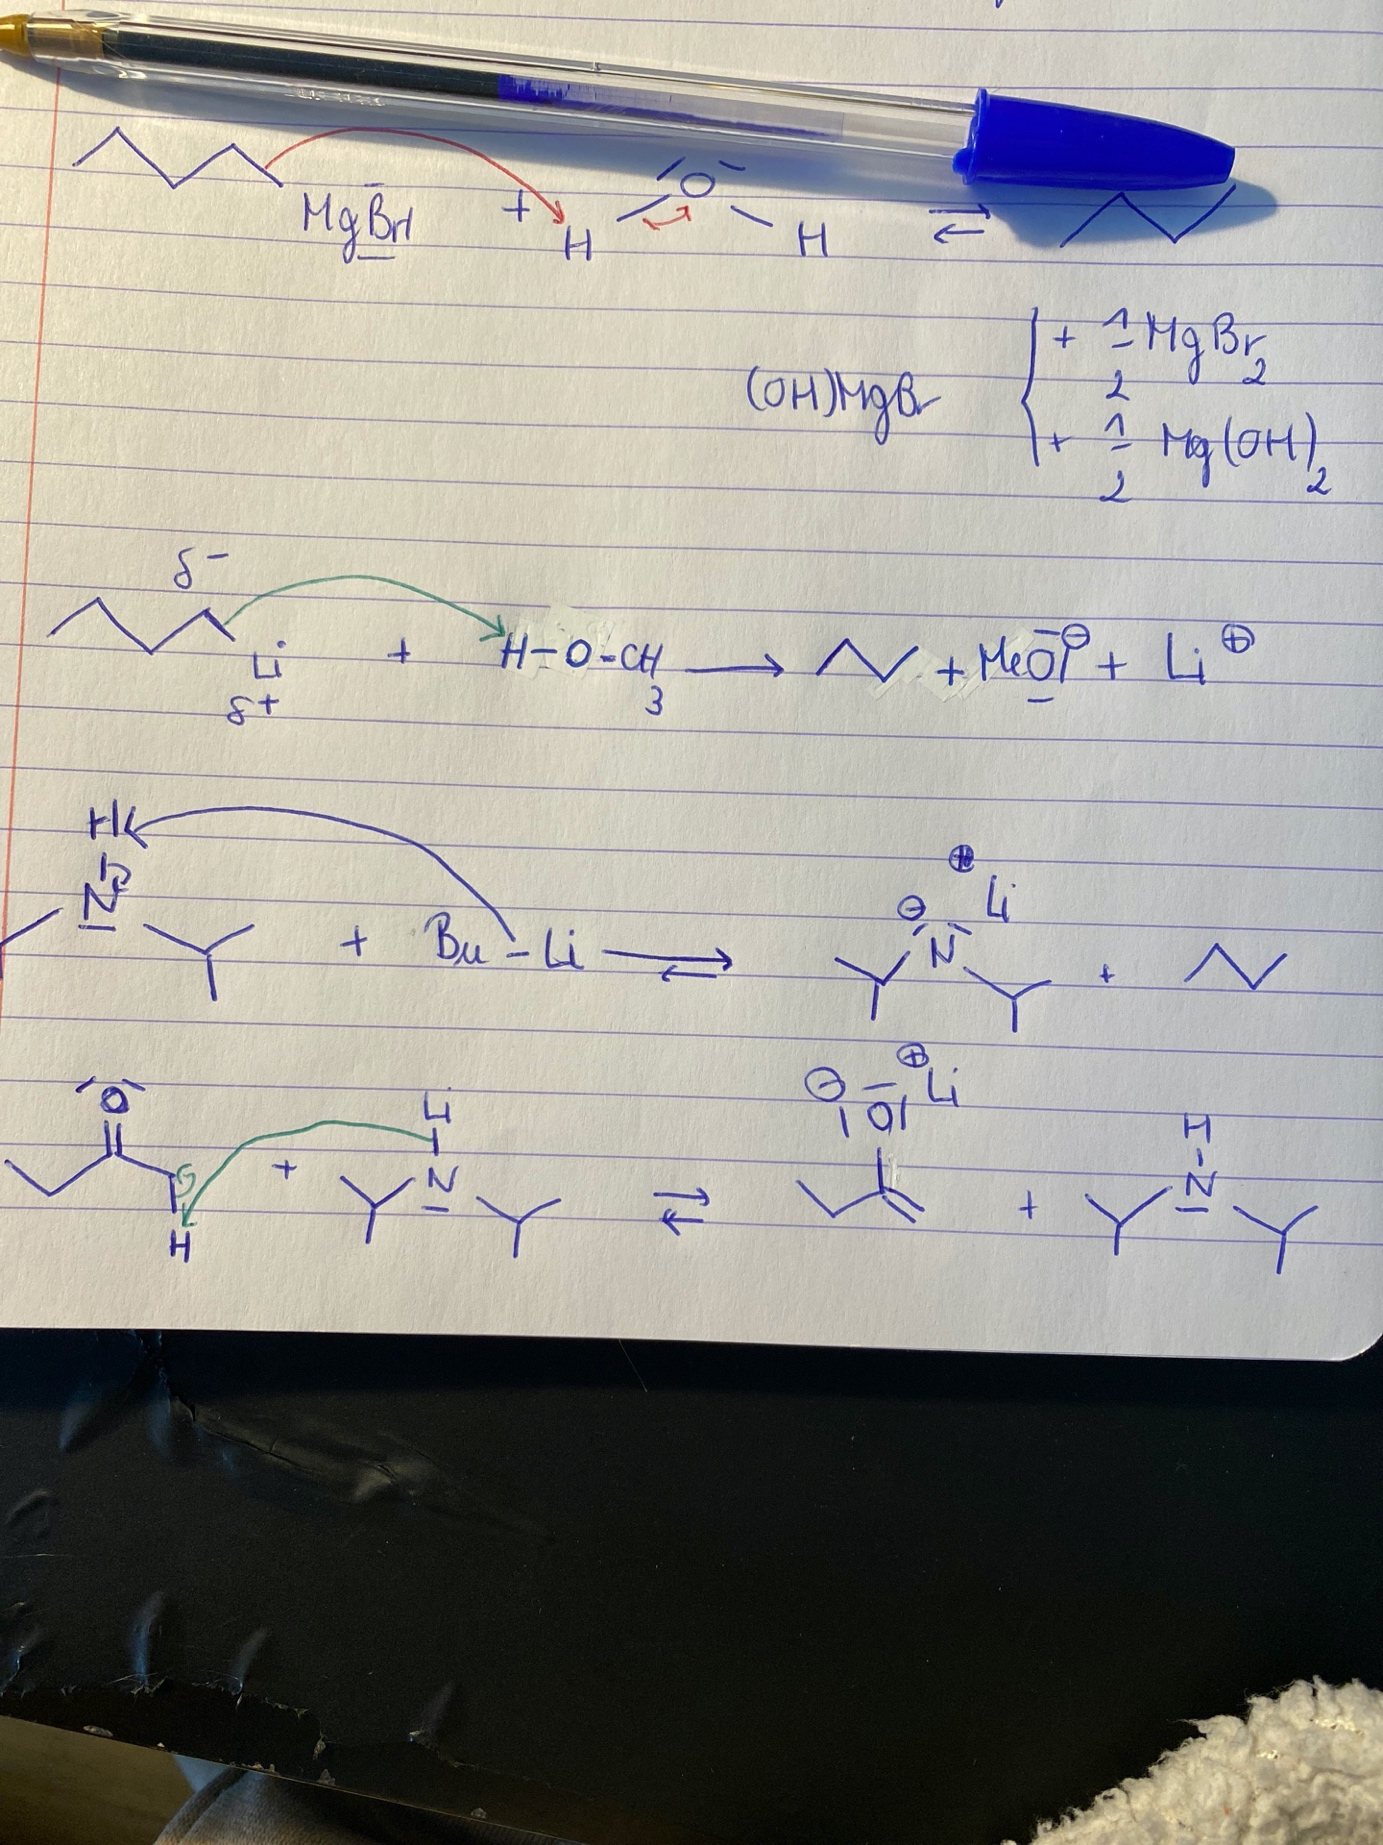 MgBr + H O H ⇌
(OH)MgBr { + 1/2 MgBr₂
+ 1/2 Mg(OH)₂
δ-
Li + H-O-CH₃ → + MeO⊖ + Li⊕
δ+
H
N + Bu-Li ⇌ ⊖ N ⊕ Li +
O H + Li N ⇌ ⊖ O ⊕ Li + H N